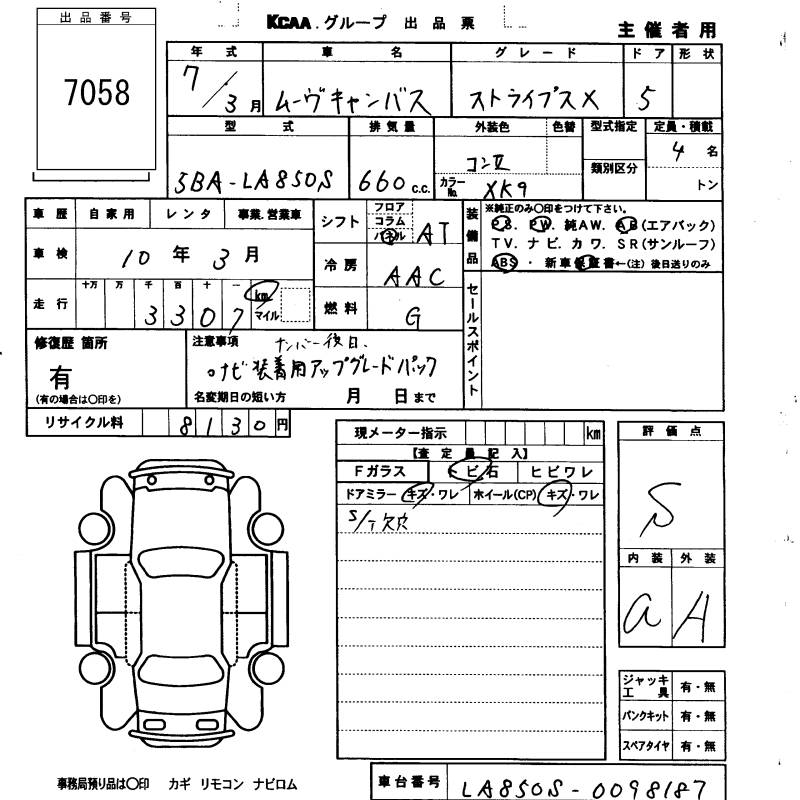 出品番号
7058
KCAA.グループ 出品票
主催者用
年式 車名 グレード ドア 形状
7/3月 ムーヴキャンバス ストライプスX 5
型式 排気量 外装色 色替 型式指定 定員・積載
5BA-LA850S 660 c.c. コン カラーNo. XK9 類別区分 4名 トン
車歴 自家用 レンタ 事業.営業車
車検 10年3月
走行 十万 万 千 百 十 一
3307 km マイル
シフト フロア コラム パネル AT
冷房 AAC
燃料 G
装備品 ※純正のみ〇印をつけて下さい。
P.S. P.W. 純AW. A.B(エアバック)
TV. ナビ. カワ. SR(サンルーフ)
ABS ・ 新車保証書←(注) 後日送りのみ
セールスポイント
修復歴 箇所
有
(有の場合は〇印を)
注意事項 ナンバー後日、
ナビ装着用アップグレードパック
名変期日の短い方 月 日まで
リサイクル料 8130円
現メーター指示 km
【査定員記入】
Fガラス トビ石 ヒビワレ
ドアミラー キズ・ワレ ホイール(CP) キズ・ワレ
S/T欠穴
評価点
S
内装 外装
a A
ジャッキ工具 有・無
パンクキット 有・無
スペアタイヤ 有・無
事務局預り品は〇印 カギ リモコン ナビロム
車台番号 LA850S-0098187